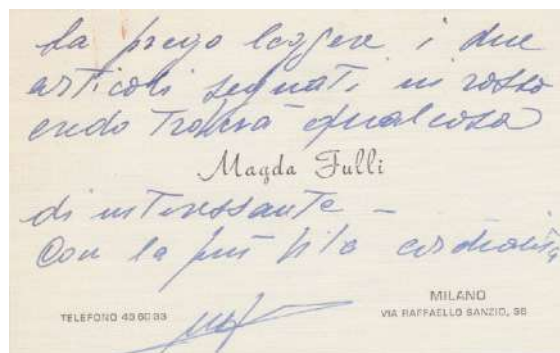 La prego leggere i due
articoli segnati in rosso
credo troverà qualcosa
Magda Fulli
di interessante –
Con la più viva cordialità
MILANO
TELEFONO 43 60 93
VIA RAFFAELLO SANZIO, 36